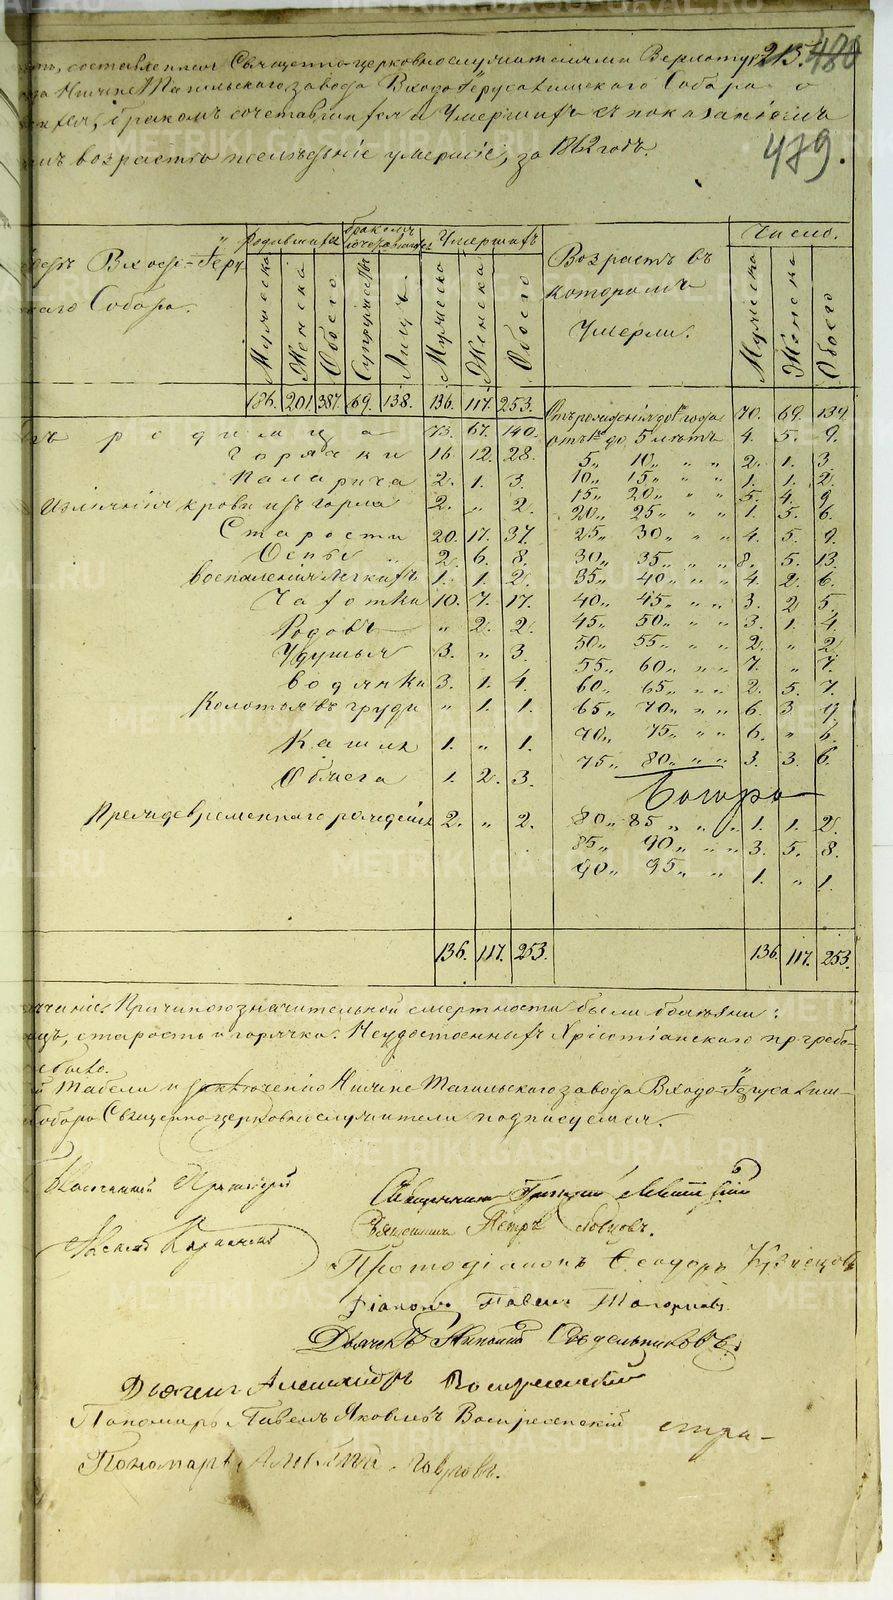 составленная Священно-церковнослужителями Верхотур 215. 480
Нижне Тагильскаго завода Входо-Іерусалимскаго Собора о
бракомъ сочетавшихся и Умершихъ съ показаніемъ
возрастъ послѣдніе умершіе, за 1862 годъ.
479.
Родившихся Бракомъ сочетавшихся Умершихъ Возрастъ въ которомъ Умерли. Число.
Входо-Іеру
скаго Собора.
Мужеска Женска Обоего Супружествъ Лицъ Мужеска Женска Обоего Мужеска Женска Обоего
186. 201. 387. 69. 138. 136. 117. 253. Отъ рожденія до 1го года 70. 69. 139.
родимца 73. 67. 140. отъ 1го до 5 лѣтъ 4. 5. 9.
Горячки 16. 12. 28. 5„ 10„ „ „ 2. 1. 3.
Паралича 2. 1. 3. 10„ 15„ „ „ 1. 1. 2.
Изліянія крови изъ горла 2. „ 2. 15„ 20„ „ „ 5. 4. 9.
20„ 25„ „ „ 1. 5. 6.
Старости 20. 17. 37. 25„ 30„ „ „ 4. 5. 9.
Оспы 2. 6. 8. 30„ 35„ „ „ 8. 5. 13.
воспаленія легкихъ 1. 1. 2. 35„ 40„ „ „ 4. 2. 6.
Чахотки 10. 7. 17. 40„ 45„ „ „ 3. 2. 5.
Родовъ „ 2. 2. 45„ 50„ „ „ 3. 1. 4.
Удушья 3. „ 3. 50„ 55„ „ „ 2. „ 2.
55„ 60„ „ „ 7. „ 7.
водянки 3. 1. 4. 60„ 65„ „ „ 2. 5. 7.
Колотья въ груди „ 1. 1. 65„ 70„ „ „ 6. 3. 9.
Кашля 1. „ 1. 70„ 75„ „ „ 6. „ 6.
75„ 80„ „ „ 3. 3. 6.
Обжега 1. 2. 3.
Преждевременнаго рожденія 2. „ 2. 80„ 85„ „ „ 1. 1. 2.
85„ 90„ „ „ 3. 5. 8.
90„ 95„ „ 1. „ 1.
136. 117. 253. 136. 117. 253.
Причиною значительной смертности были болѣзни:
старость и горячка. Неудостоенныхъ Христіанскаго погребе-
было.
Табели и заключенію Нижне Тагильскаго завода Входо-Іерусалим-
Собора Священно-церковнослужители подписуемся.
Протоіерей
Священникъ Григорій Левитскій
Священникъ Петръ
Протодіаконъ Ѳеодоръ Кузнецовъ
Діаконъ Павелъ
Дьячекъ Николай Сѣдельниковъ.
Дьячекъ Александръ Воскресенскій
Пономарь Павелъ Яковлевъ Воскресенскій
Пономарь
METRIKI.GASO-URAL.RU